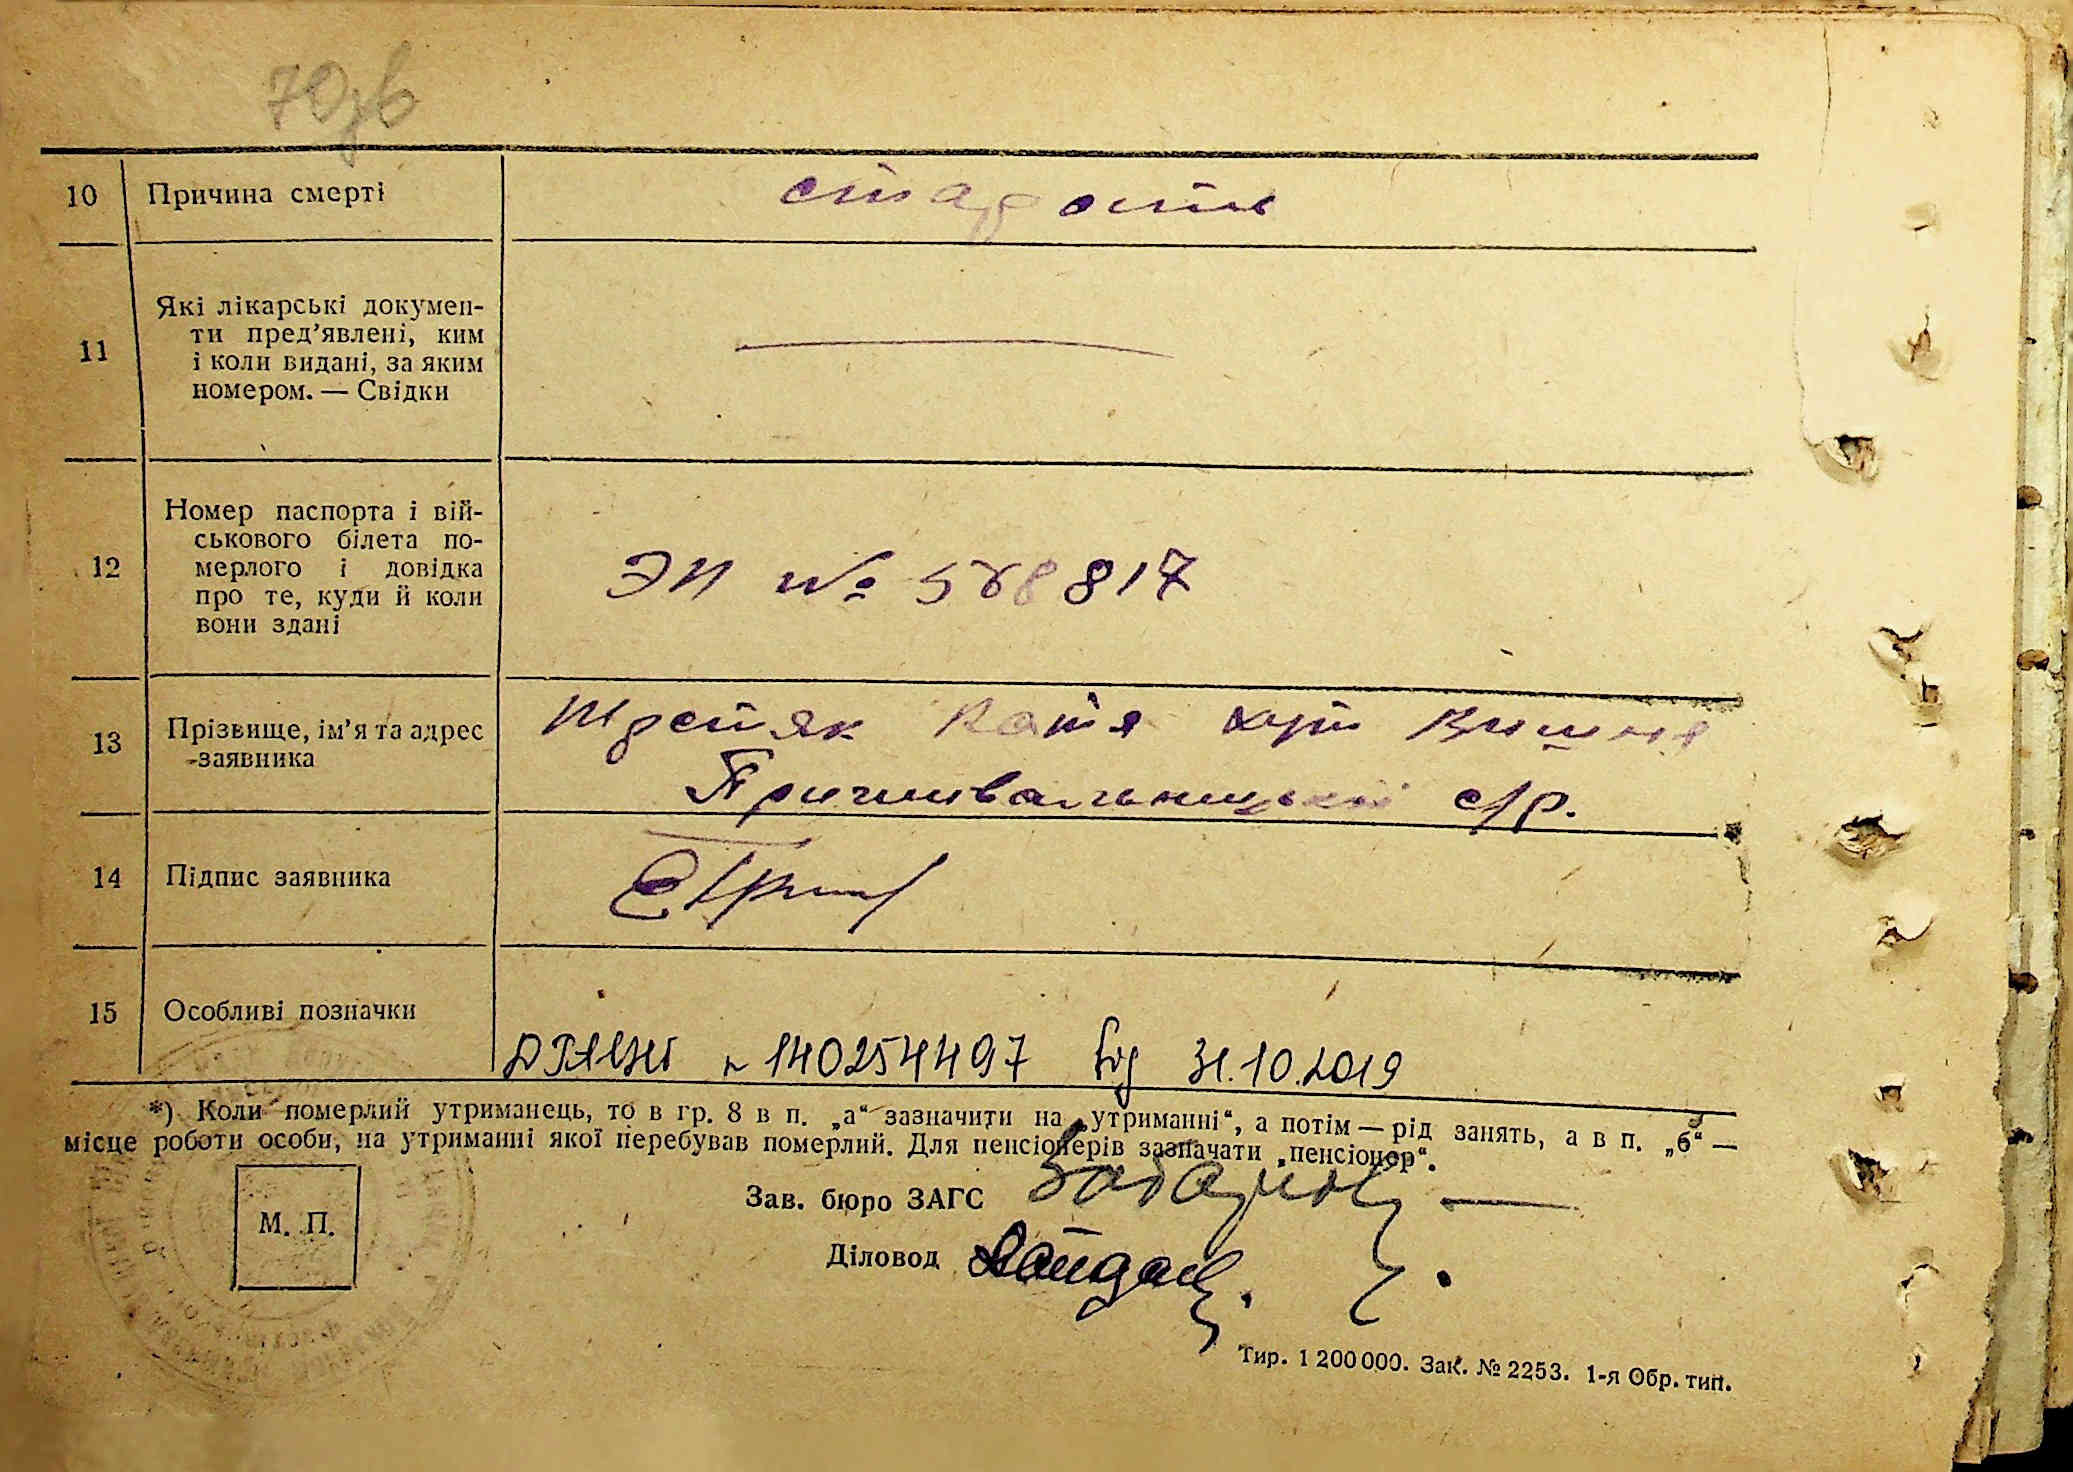 70зв
10 Причина смерті старость
11 Які лікарські докумен-
ти пред’явлені, ким
і коли видані, за яким
номером. — Свідки
12 Номер паспорта і вій-
ськового білета по-
мерлого і довідка
про те, куди й коли
вони здані
ЭП № 568817
13 Прізвище, ім’я та адрес
-заявника
Третяк Катя хут Вишня
с/р.
14 Підпис заявника
15 Особливі позначки
N 1402544497 від 31.10.2019
*) Коли померлий утриманець, то в гр. 8 в п. „а“ зазначити на „утриманні“, а потім — рід занять, а в п. „б“ —
місце роботи особи, на утриманні якої перебував померлий. Для пенсіонерів зазначати „пенсіонер“.
Зав. бюро ЗАГС
М. П.
Діловод
Тир. 1 200 000. Зак. № 2253. 1-я Обр. тип.